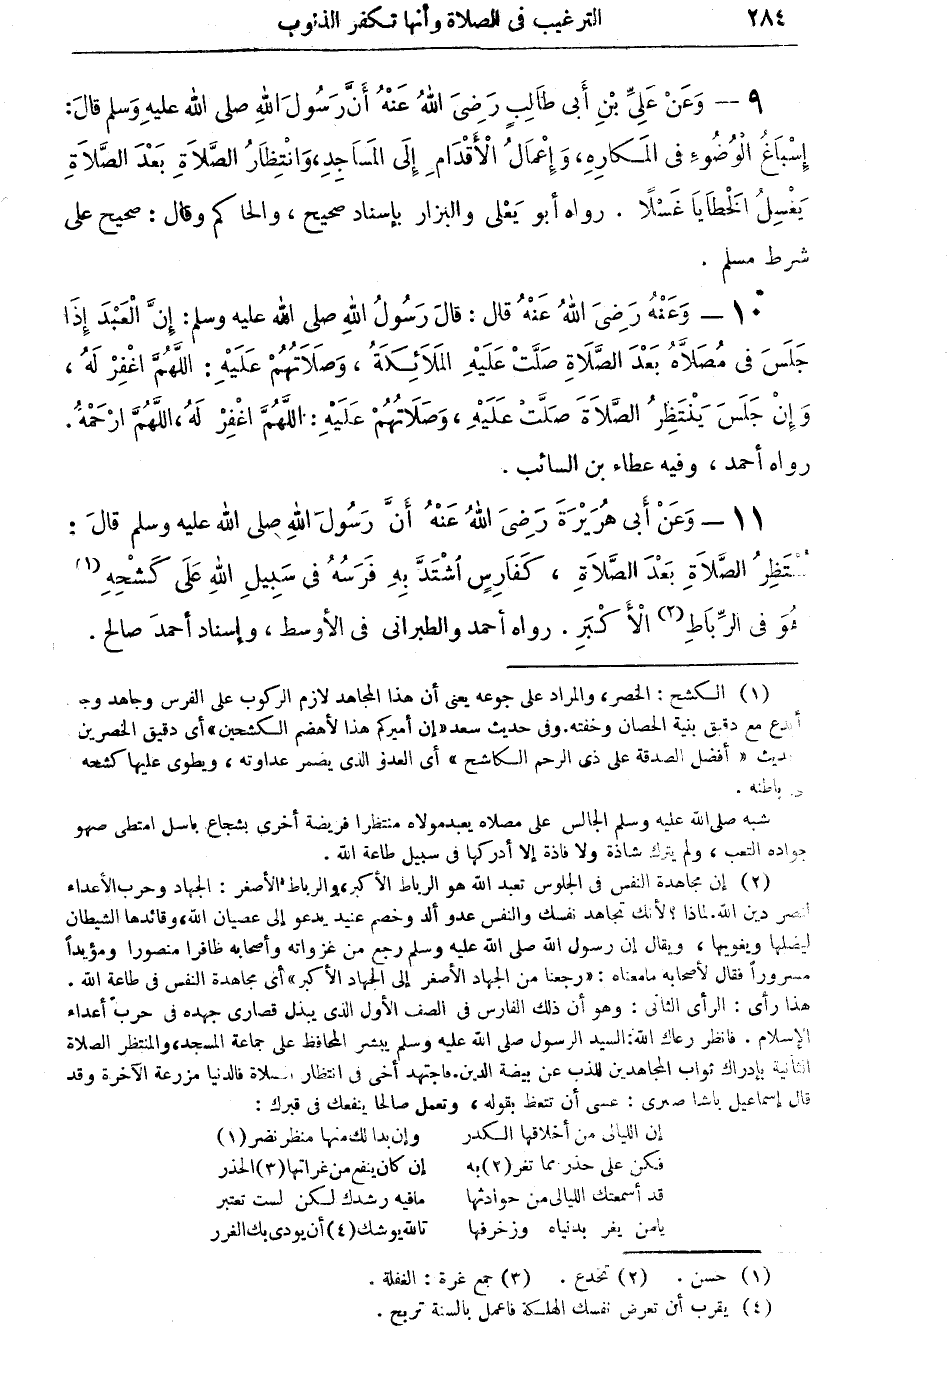 ٢٨٤ الترغيب فى الصلاة وأنها تكفر الذنوب
٩ — وَعَنْ عَلِيِّ بْنِ أَبِى طَالِبٍ رَضِىَ اللهُ عَنْهُ أَنَّ رَسُولَ اللهِ صلى الله عليهِ وَسلم قالَ:
إِسْبَاغُ الْوُضُوءِ فى المَكارِهِ، وَإِعْمَالُ الْأَقْدَامِ إِلَى المَسَاجِدِ، وَانْتِظَارُ الصَّلَاةِ بَعْدَ الصَّلَاةِ
يَغْسِلُ الْخَطَايَا غَسْلًا . رواه أبو يَعْلى والبزار بإسناد صحيح ، والحاكم وقال : صحيح على
شرط مسلم .
١٠ — وَعَنْهُ رَضِىَ اللهُ عَنْهُ قال : قالَ رَسُولُ اللهِ صلى الله عليه وسلم : إِنَّ الْعَبْدَ إِذَا
جَلَسَ فى مُصَلَّاهُ بَعْدَ الصَّلَاةِ صَلَّتْ عَلَيْهِ المَلَائِكَةُ ، وَصَلَاتُهُمْ عَلَيْهِ : اللَّهُمَّ اغْفِرْ لَهُ ،
وَإِنْ جَلَسَ يَنْتَظِرُ الصَّلَاةَ صَلَّتْ عَلَيْهِ ، وَصَلَاتُهُمْ عَلَيْهِ : اللَّهُمَّ اغْفِرْ لَهُ، اللَّهُمَّ ارْحَمْهُ.
رواه أحمد ، وفيه عطاء بن السائب .
١١ — وَعَنْ أَبى هُرَيْرَةَ رَضِىَ اللهُ عَنْهُ أَنَّ رَسُولَ اللهِ صلى الله عليه وسلم قالَ :
الصَّلَاةِ بَعْدَ الصَّلَاةِ ، كَفَارِسٍ اشْتَدَّ بِهِ فَرَسُهُ فى سَبِيلِ اللهِ عَلَى كَشْحِهِ (١)
فى الرِّبَاطِ (٢) الْأَكْبَرِ . رواه أحمد والطبرانى فى الأوسط ، وإسناد أحمدَ صالح .
(١) الكشح : الخصر، والمراد على جوعه يعنى أن هذا المجاهد لازم الركوب على الفرس وجاهد
مع دقيق بنية الحصان وخفته. وفى حديث سعد «إن أميركم هذا لأهضم الكشحين» أى دقيق الخصرين
« أفضل الصدقة على ذى الرحم الكاشح » أى العدو الذى يضمر عداوته ، ويطوى عليها كشحه
باطنه .
شبه صلى الله عليه وسلم الجالس على مصلاه يعبد مولاه منتظرا فريضة أخرى بشجاع باسل امتطى
جواده التعب ، ولم يترك شاذة ولا فاذة إلا أدركها فى سبيل طاعة الله .
(٢) إن مجاهدة النفس فى الجلوس تعبد الله هو الرباط الأكبر، والرباط الأصغر : الجهاد وحرب الأعداء
دين الله. لماذا ؟ لأنك تجاهد نفسك والنفس عدو ألد وخصم عنيد يدعو إلى عصيان الله، وقائدها الشيطان
ليضلها ويغويها ، ويقال إن رسول الله صلى الله عليه وسلم رجع من غزواته وأصحابه ظافرا منصورا ومؤيداً
مسروراً فقال لأصحابه مامعناه : «رجعنا من الجهاد الأصغر إلى الجهاد الأكبر» أى مجاهدة النفس فى طاعة الله .
هذا رأى : الرأى الثانى : وهو أن ذلك الفارس فى الصف الأول الذى يبذل قصارى جهده فى حرب أعداء
الإسلام . فانظر رعاك الله: السيد الرسول صلى الله عليه وسلم يبشر المحافظ على جماعة المسجد، والمنتظر الصلاة
الثانية بإدراك ثواب المجاهدين للذب عن بيضة الدين. فاجتهد أخى فى انتظار الصلاة فالدنيا مزرعة الآخرة وقد
قال إسماعيل باشا صبرى : عسى أن تتعظ بقوله ، وتعمل صالحا ينفعك فى قبرك :
إن الليالى من أخلاقها الكدر وإن بدا لك منها منظر نضر (١)
فكن على حذر مما تغر (٢) به إن كان ينفع من غراتها (٣) الحذر
قد أسمعتك الليالى من حوادثها مافيه رشدك لكن لست تعتبر
يامن يغر بدنياه وزخرفها تالله يوشك (٤) أن يودى بك الغرر
(١) حسن . (٢) تخدع . (٣) جمع غرة : الغفلة .
(٤) يقرب أن تعرض نفسك الهلكة فاعمل بالسنة تربح .